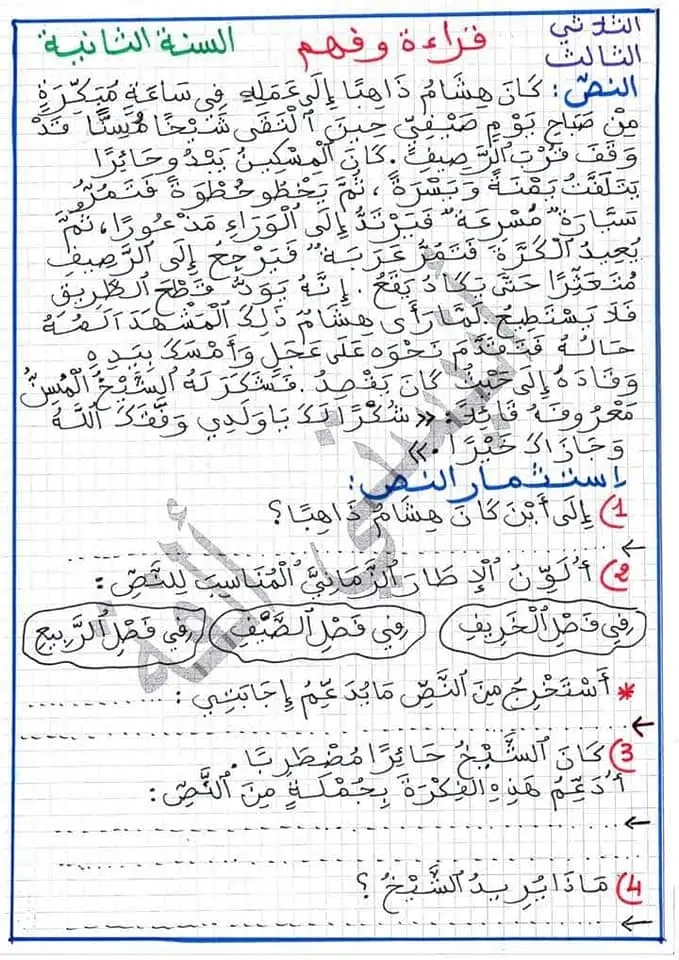 الثلاثي الثالث
قراءة و فهم
السنة الثانية
النص : كَانَ هِشَامُ ذَاهِبًا إِلَى عَمَلِهِ فِي سَاعَةٍ مُبَكِّرَةٍ
مِنْ صَبَاحِ يَوْمٍ صَيْفِيٍّ حِينَ الْتَقَى شَيْخًا مُسِنًّا قَدْ
وَقَفَ قُرْبَ الرَّصِيفِ . كَانَ الْمِسْكِينُ يَبْدُو حَائِرًا
يَتَلَفَّتُ يَمْنَةً وَيَسْرَةً ، ثُمَّ يَخْطُو خُطْوَةً فَتَمُرُّ
سَيَّارَةٌ مُسْرِعَةٌ فَيَرْتَدُّ إِلَى الْوَرَاءِ مَذْعُورًا ، ثُمَّ
يُعِيدُ الْكَرَّةَ فَتَمُرُّ عَرَبَةٌ فَيَرْجِعُ إِلَى الرَّصِيفِ
مُتَعَثِّرًا حَتَّى يَكَادَ يَقَعُ . إِنَّهُ يَوَدُّ قَطْعَ الطَّرِيقِ
فَلَا يَسْتَطِيعُ . لَمَّا رَأَى هِشَامٌ ذَلِكَ الْمَشْهَدَ آلَمَهُ
حَالُهُ فَتَقَدَّمَ نَحْوَهُ عَلَى عَجَلٍ وَأَمْسَكَ بِيَدِهِ
وَقَادَهُ إِلَى حَيْثُ كَانَ يَقْصِدُ . فَشَكَرَ لَهُ الشَّيْخُ الْمُسِنُّ
مَعْرُوفَهُ قَائِلًا : « شُكْرًا لَكَ يَا وَلَدِي وَفَّقَكَ اللَّهُ
وَجَازَاكَ خَيْرًا . »
إستثمار النص :
1) إِلَى أَيْنَ كَانَ هِشَامُ ذَاهِبًا ؟
2) أُلَوِّنُ الْإِطَارَ الزَّمَانِيَّ الْمُنَاسِبَ لِلنَّصِّ :
فِي فَصْلِ الْخَرِيفِ فِي فَصْلِ الصَّيْفِ فِي فَصْلِ الرَّبِيعِ
* أَسْتَخْرِجُ مِنَ النَّصِّ مَا يُدَعِّمُ إِجَابَتِي :
3) كَانَ الشَّيْخُ حَائِرًا مُضْطَرِبًا .
أُدَعِّمُ هَذِهِ الْفِكْرَةَ بِجُمْلَةٍ مِنَ النَّصِّ :
4) مَاذَا يُرِيدُ الشَّيْخُ ؟